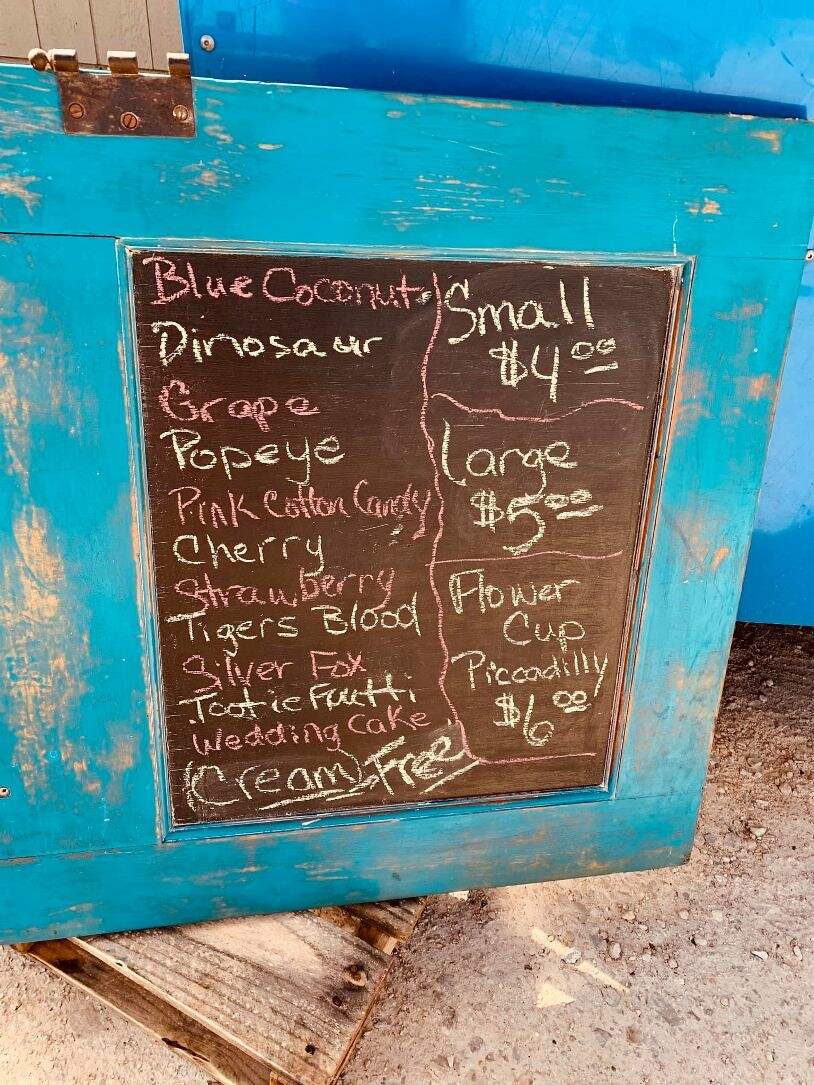 Blue Coconut
Dinosaur
Grape
Popeye
Pink Cotton Candy
Cherry
Strawberry
Tigers Blood
Silver Fox
Tootie Fuitti
Wedding Cake
(Cream) - Free
Small
$4.00
Large
$5.00
Flower
Cup
Piccadilly
$6.00